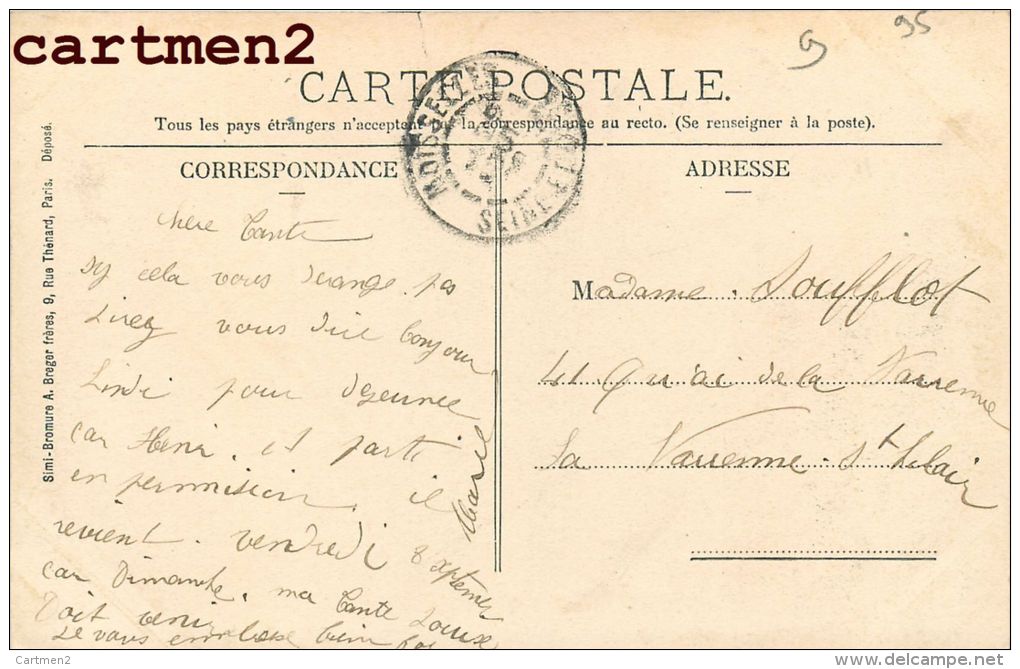 cartmen2
95
CARTE POSTALE.
Tous les pays étrangers n'acceptent pas la correspondance au recto. (Se renseigner à la poste).
CORRESPONDANCE
ADRESSE
MOISSELLES
SEINE-ET-OISE
Simi-Bromure A. Breger frères, 9, Rue Thénard, Paris. Déposé.
chère Tante
sy cela vous derange pas
vous dire bonjour
Lindi pour dejeunee
car Henri. est parti
en permission, il
revient. vendredi 8 septembre
car Dimanche, ma Tante Louise
Doit venir
Je vous embrasse bien
Marie
Madame. Soufflot
41 Quai de la Varenne
La Varenne. St Hilair
Cartmen2
www.delcampe.net